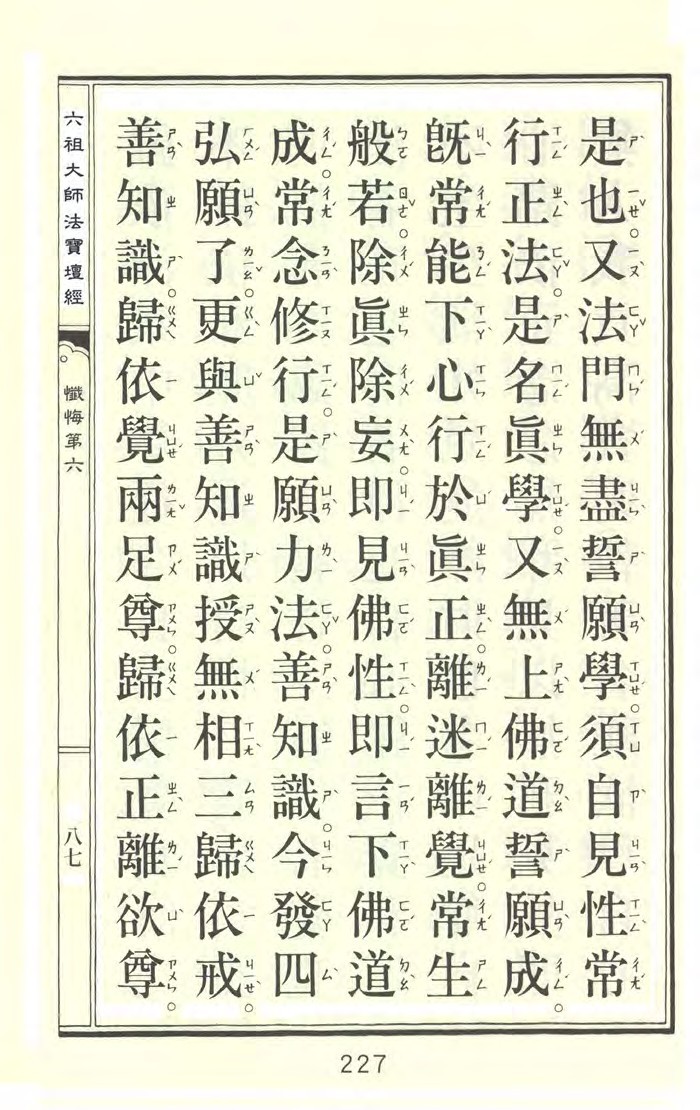 是也。又法門無盡誓願學。須自見性。常
行正法。是名眞學。又無上佛道誓願成。
旣常能下心。行於眞正。離迷離覺。常生
般若。除眞除妄。即見佛性。即言下佛道
成。常念修行。是願力法。善知識。今發四
弘願了。更與善知識授無相三歸依戒。
善知識。歸依覺兩足尊。歸依正離欲尊。
六祖大師法寶壇經
懺悔第六
八七
227